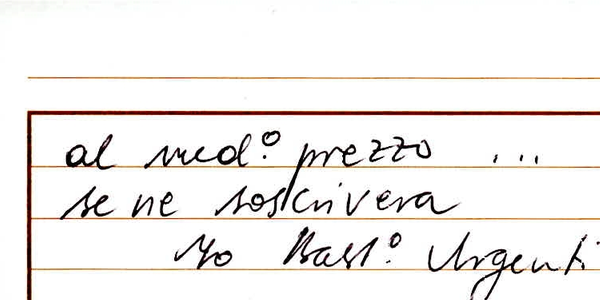 al med.º prezzo ...
se ne soscrivera
Yo Bast.º Urgenti